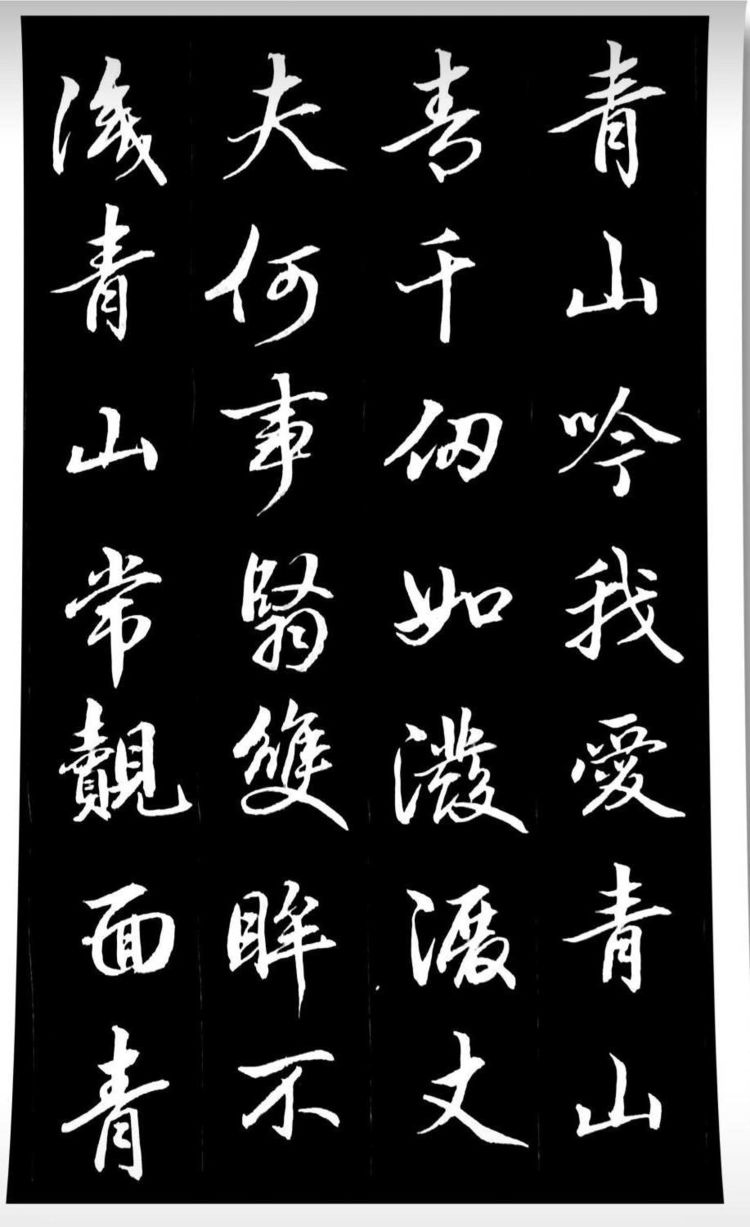 青山吟我愛青山
青千仞如潑澱丈
夫何事翳雙眸不
識青山常覿面青